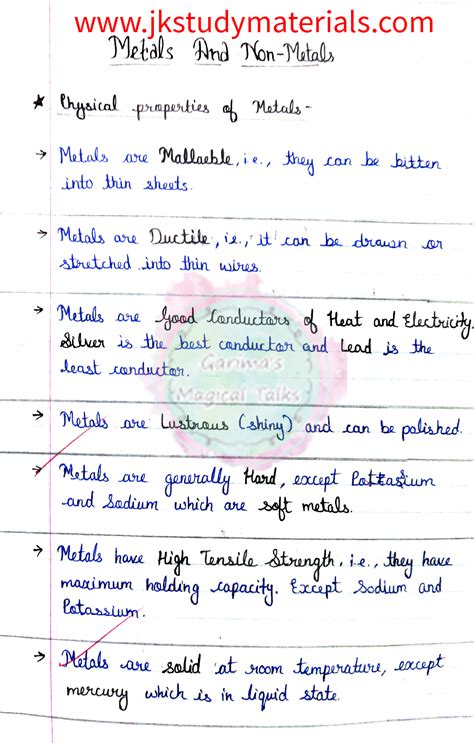 www.jkstudymaterials.com
Metals And Non-Metals
★ Physical properties of Metals-
→ Metals are Mallaeble, i.e., they can be bitten
into thin sheets.
→ Metals are Ductile, i.e., it can be drawn or
stretched into thin wires.
→ Metals are Good Conductors of Heat and Electricity.
Silver is the best conductor and Lead is the
least conductor.
Garima's
Magical Talks
→ Metals are Lustrous (shiny) and can be polished.
→ Metals are generally Hard, except Pottasium
and Sodium which are soft metals.
→ Metals have High Tensile Strength, i.e., they have
maximum holding capacity. Except Sodium and
Potassium.
→ Metals are solid at room temperature, except
mercury which is in liquid state.